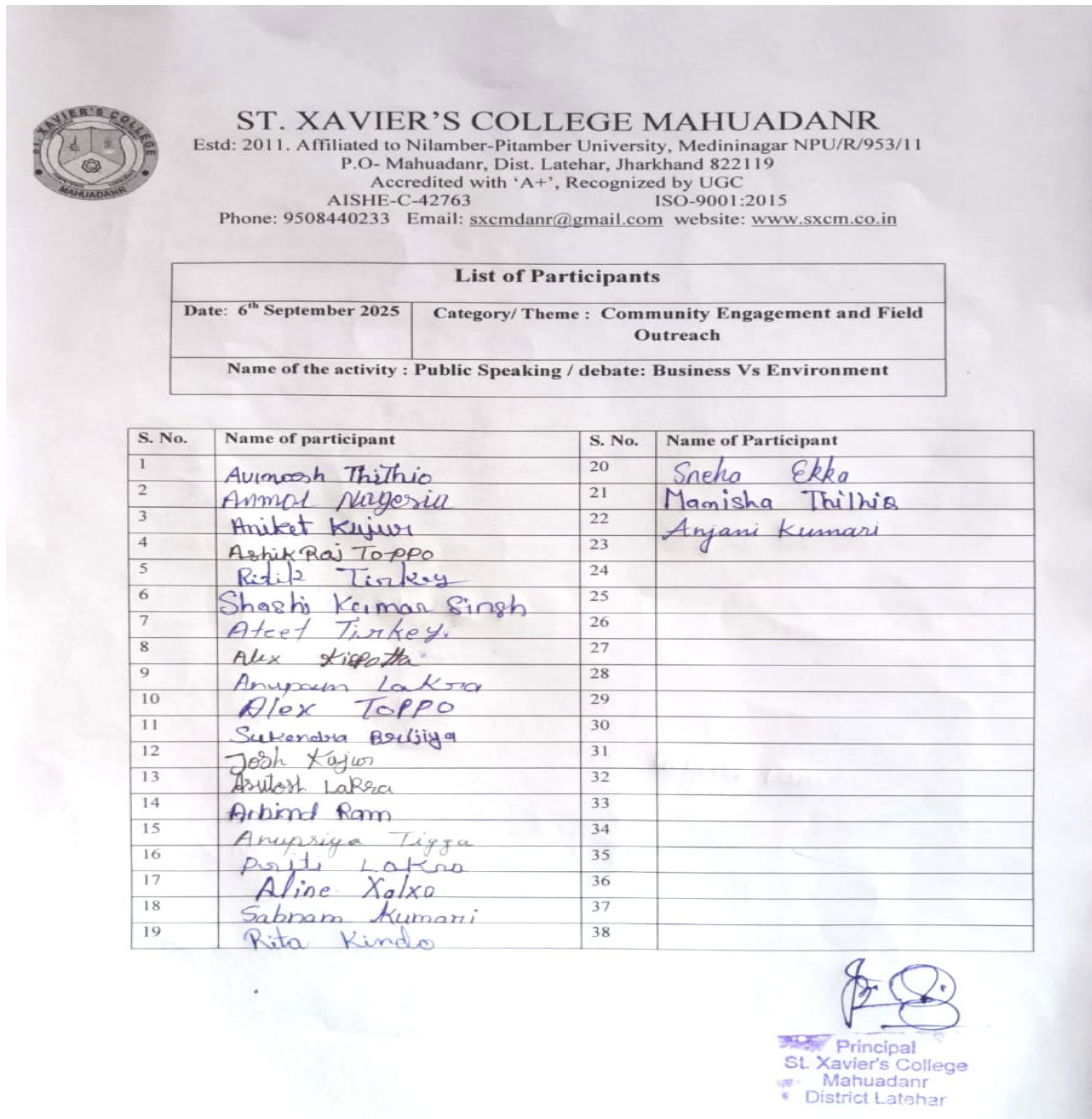 ST. XAVIER'S COLLEGE
MAHUADANR
ST. XAVIER'S COLLEGE MAHUADANR
Estd: 2011. Affiliated to Nilamber-Pitamber University, Medininagar NPU/R/953/11
P.O- Mahuadanr, Dist. Latehar, Jharkhand 822119
Accredited with ‘A+’, Recognized by UGC
AISHE-C-42763 ISO-9001:2015
Phone: 9508440233 Email: sxcmdanr@gmail.com website: www.sxcm.co.in
List of Participants
Date: 6th September 2025 Category/ Theme : Community Engagement and Field
Outreach
Name of the activity : Public Speaking / debate: Business Vs Environment
S. No. Name of participant S. No. Name of Participant
1 Thithio 20 Sneha Ekka
2 Anmol Nagesia 21 Manisha Thithio
3 Aniket Kujur 22 Anjani Kumari
4 Ashik Raj Toppo 23
5 Ritik Tirkey 24
6 Shashi Kumar Singh 25
7 Ateet Tirkey. 26
8 Alex Kispotta 27
9 Anupam Lakra 28
10 Alex Toppo 29
11 Sukendra Brijiya 30
12 Josh Kujur 31
13 Asutosh Lakra 32
14 Arbind Ram 33
15 Anupriya Tigga 34
16 Priti Lakra 35
17 Aline Xalxo 36
18 Sabnam Kumari 37
19 Rita Kindo 38
Principal
St. Xavier's College
Mahuadanr
District Latehar